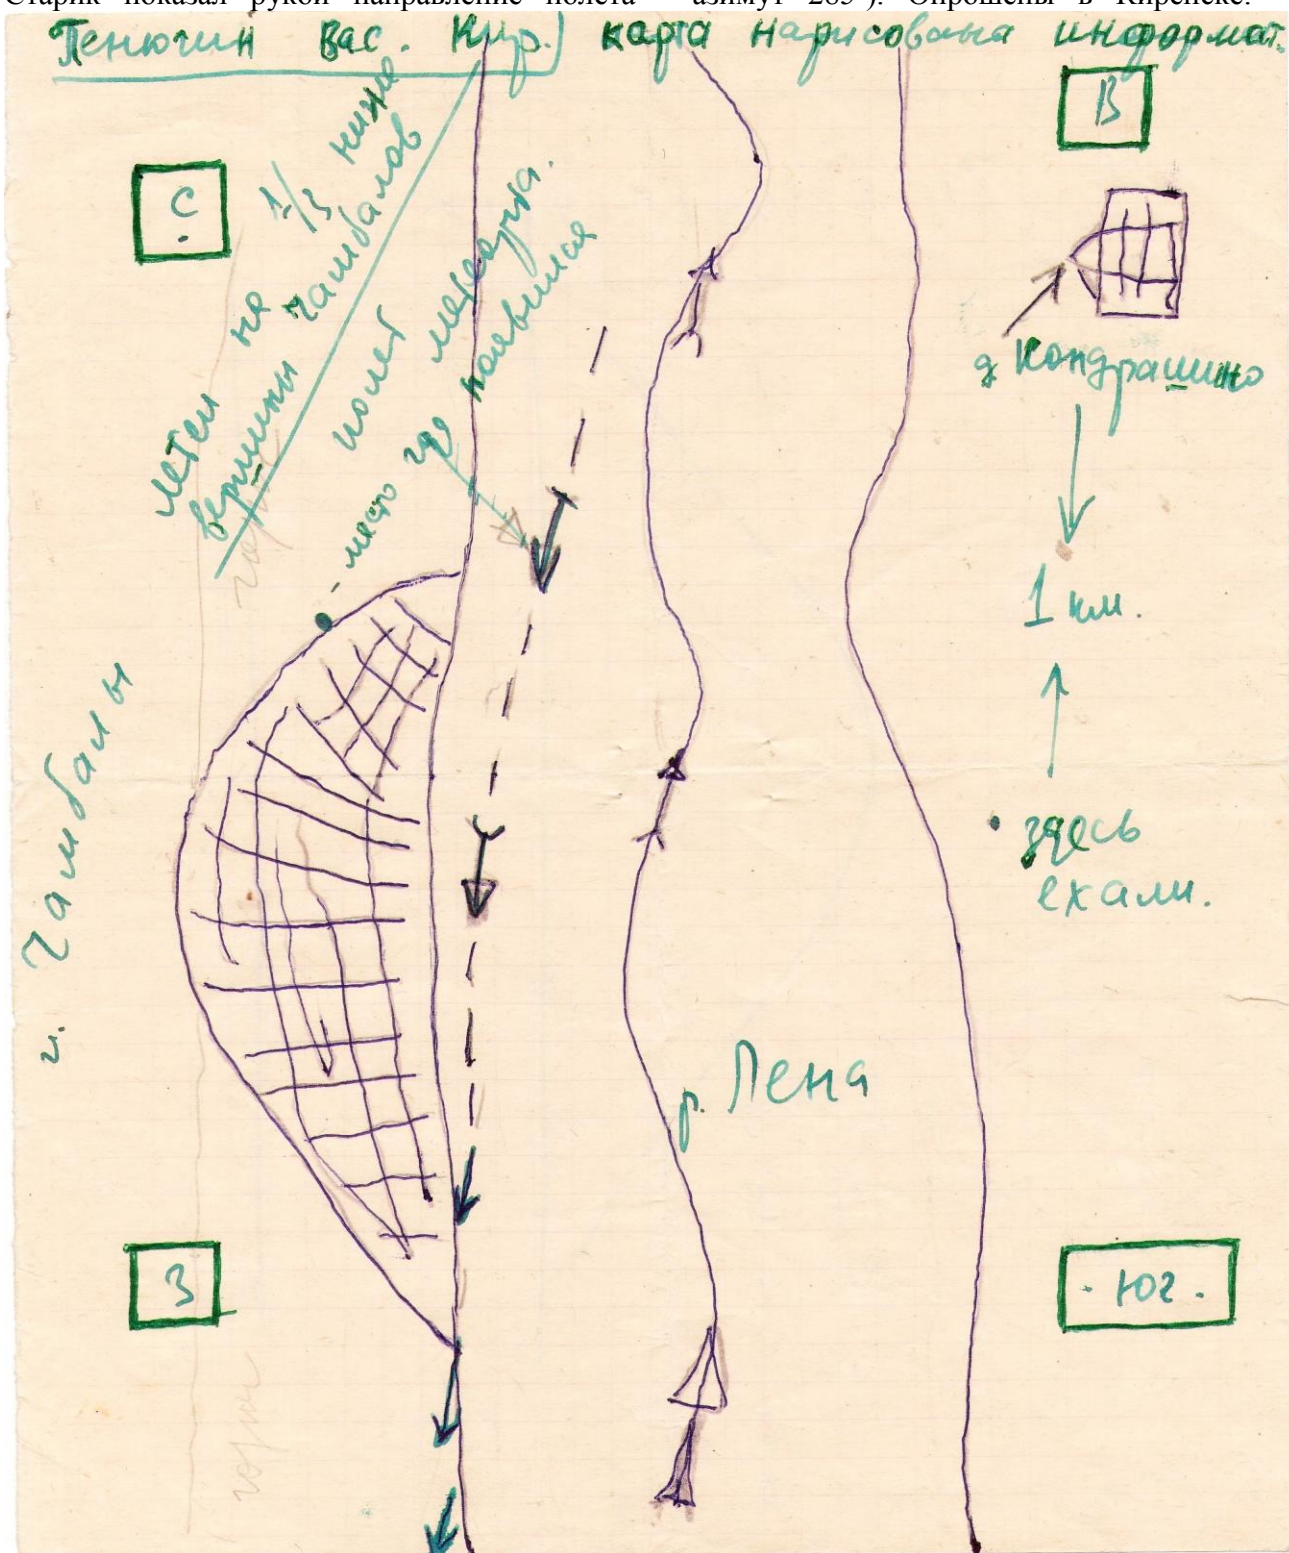 Старик показал рукой направление полета азимут 285°). Опрошены в Киренске.
Пенюгин Вас. Кир.) карта нарисована информат.
С
В
летел на 1/3 ниже
вершины чамбалов
полет метеорита.
- место где появился
д Кондрашино
1 км.
здесь
ехали.
г. Чамбалы
р. Лена
З
Юг